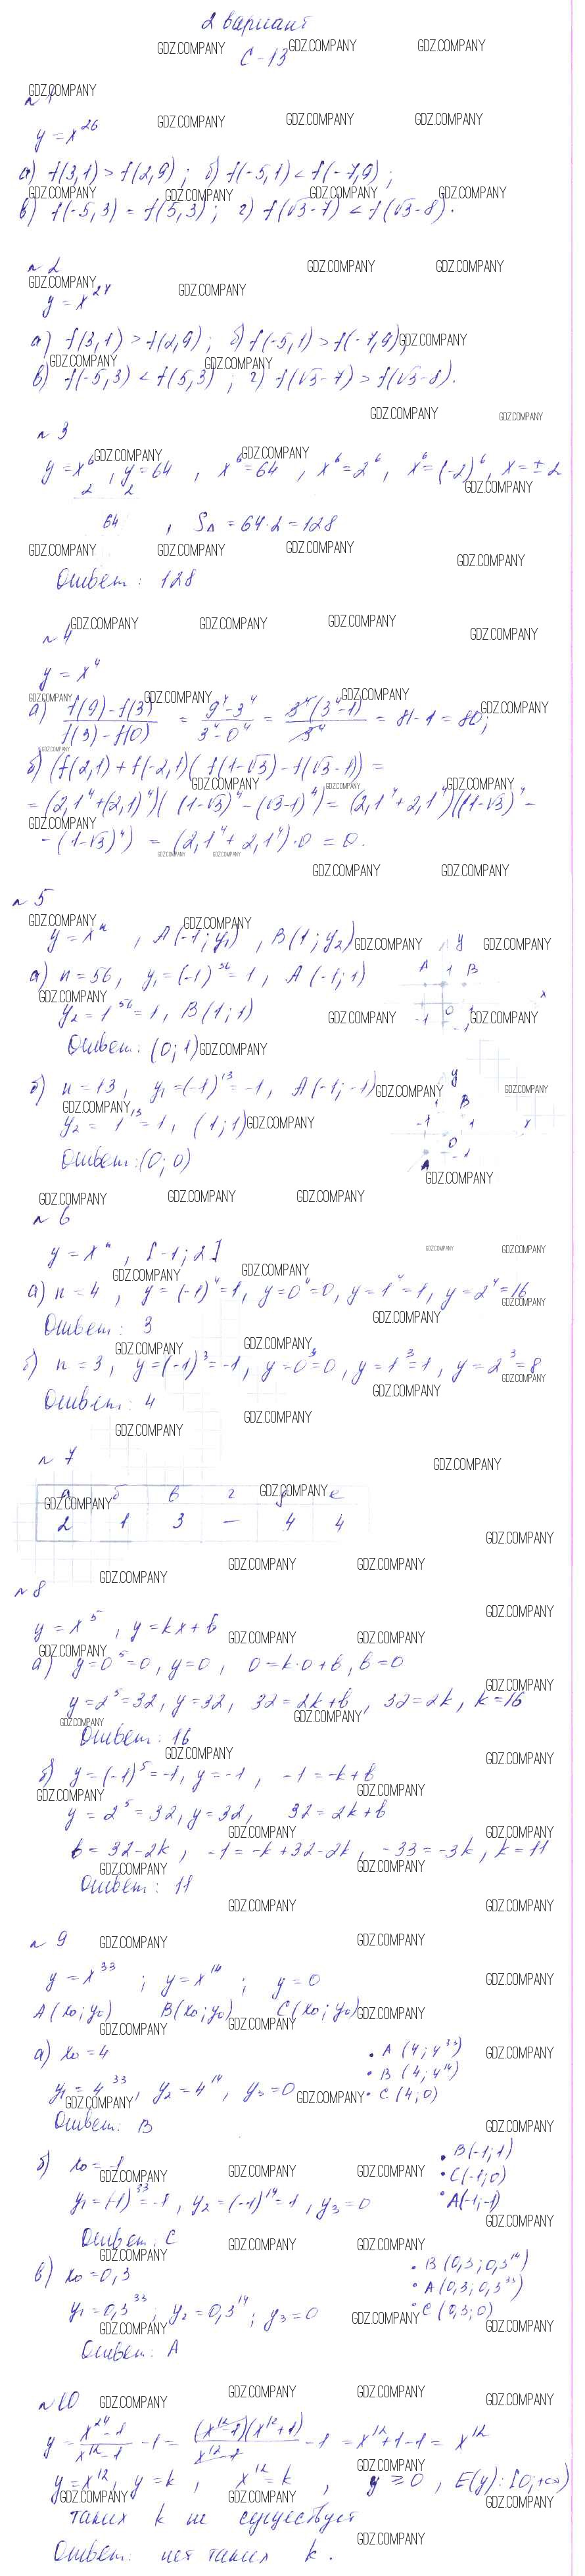 2 вариант
С-13
№1
y = x^26
а) f(3,1) > f(2,9); б) f(-5,1) < f(-7,9);
в) f(-5,3) = f(5,3); г) f(√3-7) < f(√3-8).
№2
y = x^27
а) f(3,1) > f(2,9); б) f(-5,1) > f(-7,9);
в) f(-5,3) < f(5,3); г) f(√3-7) > f(√3-8).
№3
y = x^6, y = 64, x^6 = 64, x^6 = 2^6, x^6 = (-2)^6, x = ±2
2 2
64, S∆ = 64·2 = 128
Ответ: 128
№4
y = x^4
а) (f(9)-f(3))/(f(3)-f(0)) = (9^4-3^4)/(3^4-0^4) = 3^4(3^4-1)/3^4 = 81-1 = 80;
б) (f(2,1)+f(-2,1)(f(1-√3)-f(√3-1)) =
= (2,1^4+(2,1)^4)((1-√3)^4-(√3-1)^4) = (2,1^4+2,1^4)((1-√3)^4-
-(1-√3)^4) = (2,1^4+2,1^4)·0 = 0.
№5
y = x^n, A(-1; y1), B(1; y2)
а) n = 56, y1 = (-1)^56 = 1, A(-1; 1)
y2 = 1^56 = 1, B(1; 1)
Ответ: (0; 1)
y
A 1 B
x
-1 0 1
-1
б) n = 13, y1 = (-1)^13 = -1, A(-1; -1)
y2 = 1^13 = 1, (1; 1)
Ответ: (0; 0)
y
1 B
-1 1 x
0
A -1
№6
y = x^n, [-1; 2]
а) n = 4, y = (-1)^4 = 1, y = 0^4 = 0, y = 1^4 = 1, y = 2^4 = 16
Ответ: 3
б) n = 3, y = (-1)^3 = -1, y = 0^3 = 0, y = 1^3 = 1, y = 2^3 = 8
Ответ: 4
№7
а б в г д е
2 1 3 — 4 4
№8
y = x^5, y = kx+b
а) y = 0^5 = 0, y = 0, 0 = k·0+b, b = 0
y = 2^5 = 32, y = 32, 32 = 2k+b, 32 = 2k, k = 16
Ответ: 16
б) y = (-1)^5 = -1, y = -1, -1 = -k+b
y = 2^5 = 32, y = 32, 32 = 2k+b
b = 32-2k, -1 = -k+32-2k, -33 = -3k, k = 11
Ответ: 11
№9
y = x^33; y = x^14; y = 0
A(x0; y0) B(x0; y0) C(x0; y0)
а) x0 = 4
y1 = 4^33, y2 = 4^14, y3 = 0
Ответ: B
• A(4; 4^33)
• B(4; 4^14)
• C(4; 0)
б) x0 = -1
y1 = (-1)^33 = -1, y2 = (-1)^14 = 1, y3 = 0
Ответ: C
• B(-1; 1)
• C(-1; 0)
• A(-1; -1)
в) x0 = 0,3
y1 = 0,3^33; y2 = 0,3^14; y3 = 0
Ответ: A
• B(0,3; 0,3^14)
• A(0,3; 0,3^33)
• C(0,3; 0)
№10
y = (x^24-1)/(x^12-1) -1 = (x^12-1)(x^12+1)/(x^12-1) -1 = x^12+1-1 = x^12
y = x^12, y = k, x^12 = k, y ≥ 0, E(y): [0; +∞)
таких k не существует
Ответ: нет таких k.
GDZ.COMPANY